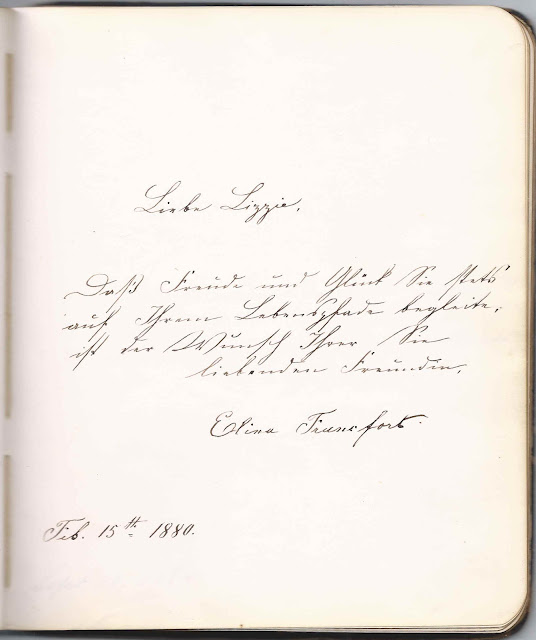 Liebe Lizzie,
Daß Freude und Glück Sie stets
auf Ihrem Lebenspfade begleite,
ist der Wunsch Ihrer Sie
liebenden Freundin,
Elina Francfort.
Feb. 15th 1880.